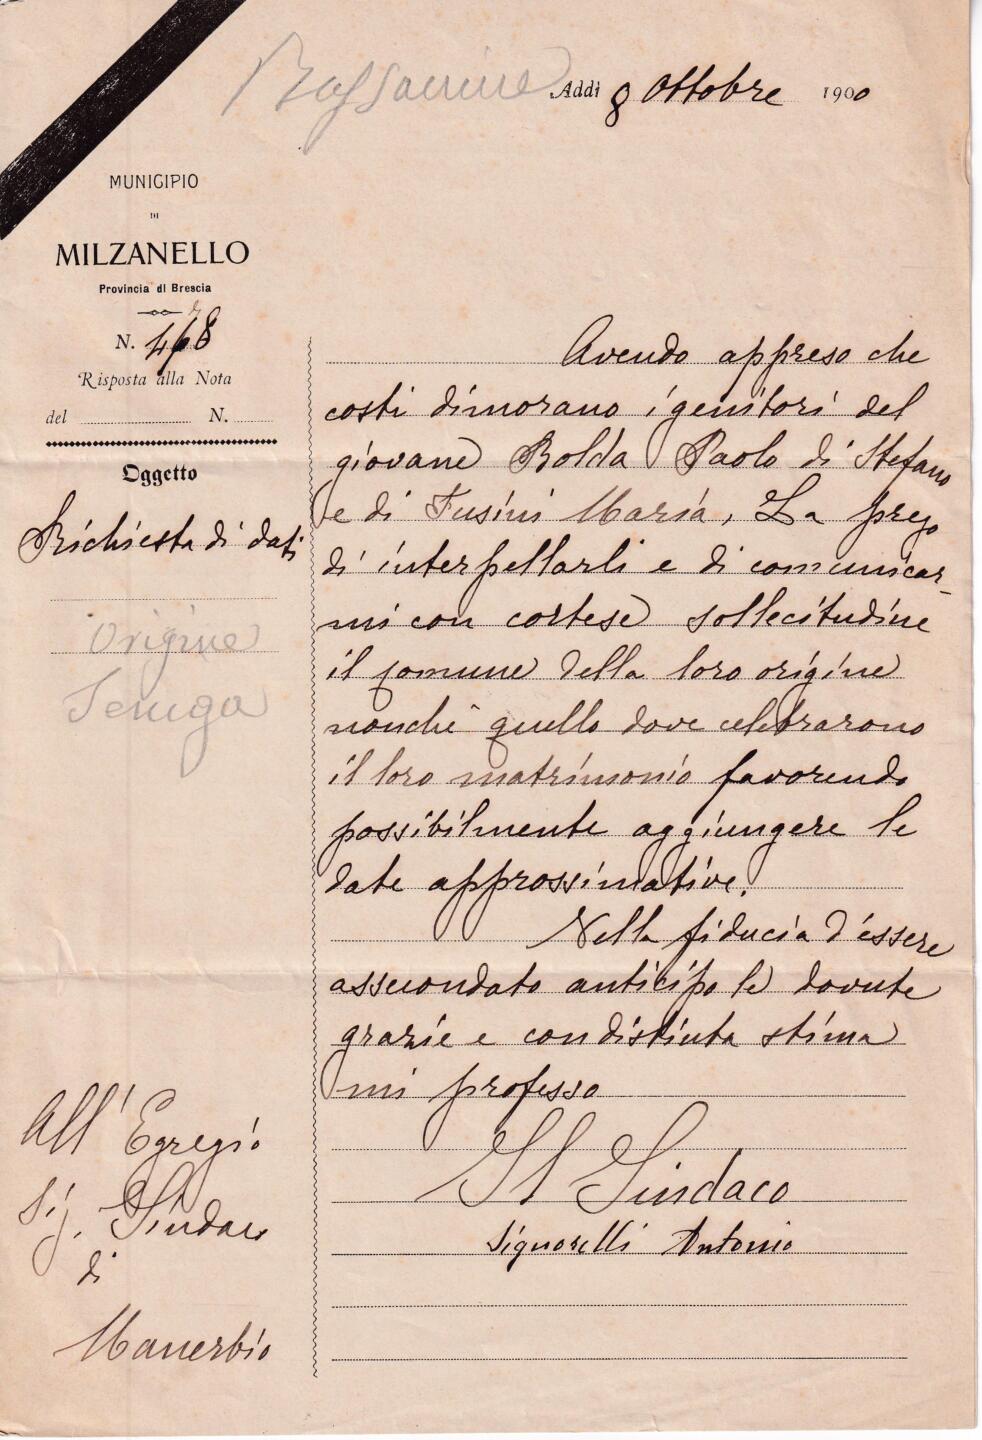 Addì 8 Ottobre 1900
MUNICIPIO
DI
MILZANELLO
Provincia di Brescia
N. 468
Risposta alla Nota
del N.
Oggetto
Richiesta di dati
Origine
Avendo appreso che
costì dimorano i genitori del
giovane Bolda Paolo di Stefano
e di Fusini Maria, La prego
di interpellarli e di comunicar-
mi con cortese sollecitudine
il comune della loro origine
nonchè quello dove celebrarono
il loro matrimonio favorendo
possibilmente aggiungere le
date approssimative.
Nella fiducia d'essere
assecondato anticipo le dovute
grazie e con distinta stima
mi professo
Il Sindaco
Signorelli Antonio
All'Egregio
Sig. Sindaco
di
Manerbio